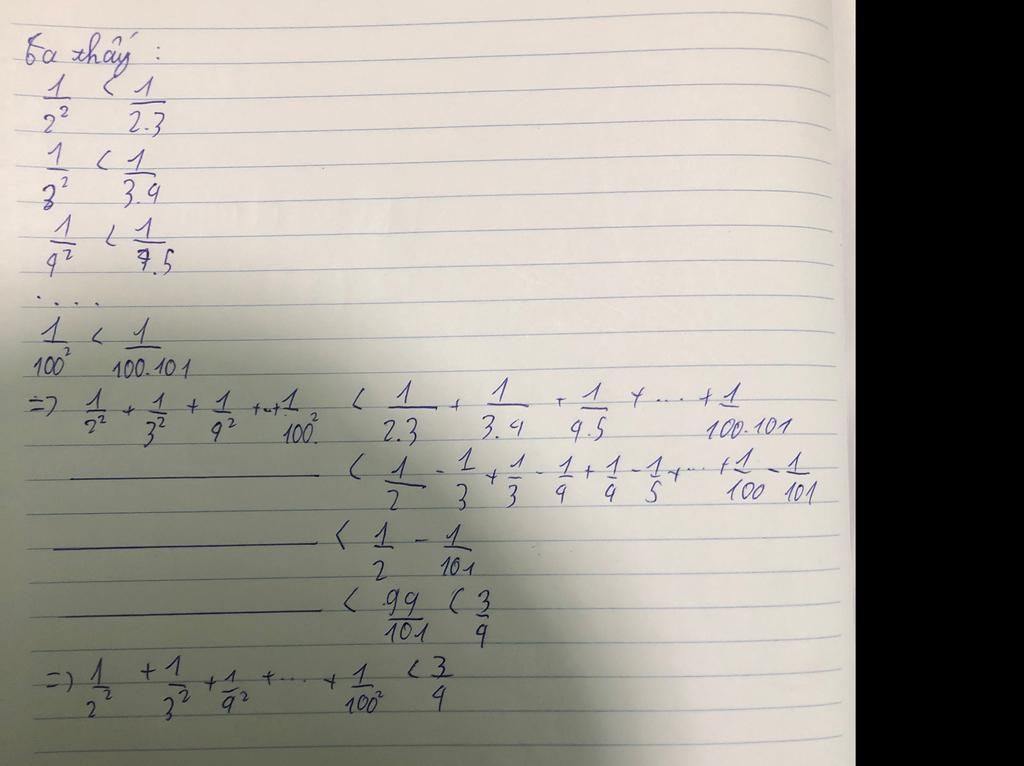 Ta thấy :
1/2² < 1/2.3
1/3² < 1/3.4
1/4² < 1/4.5
.....
1/100² < 1/100.101
=> 1/2² + 1/3² + 1/4² +..+ 1/100² < 1/2.3 + 1/3.4 + 1/4.5 + ... + 1/100.101
< 1/2 - 1/3 + 1/3 - 1/4 + 1/4 - 1/5 + ... + 1/100 - 1/101
< 1/2 - 1/101
< 99/101 < 3/4
=> 1/2² + 1/3² + 1/4² + .... + 1/100² < 3/4